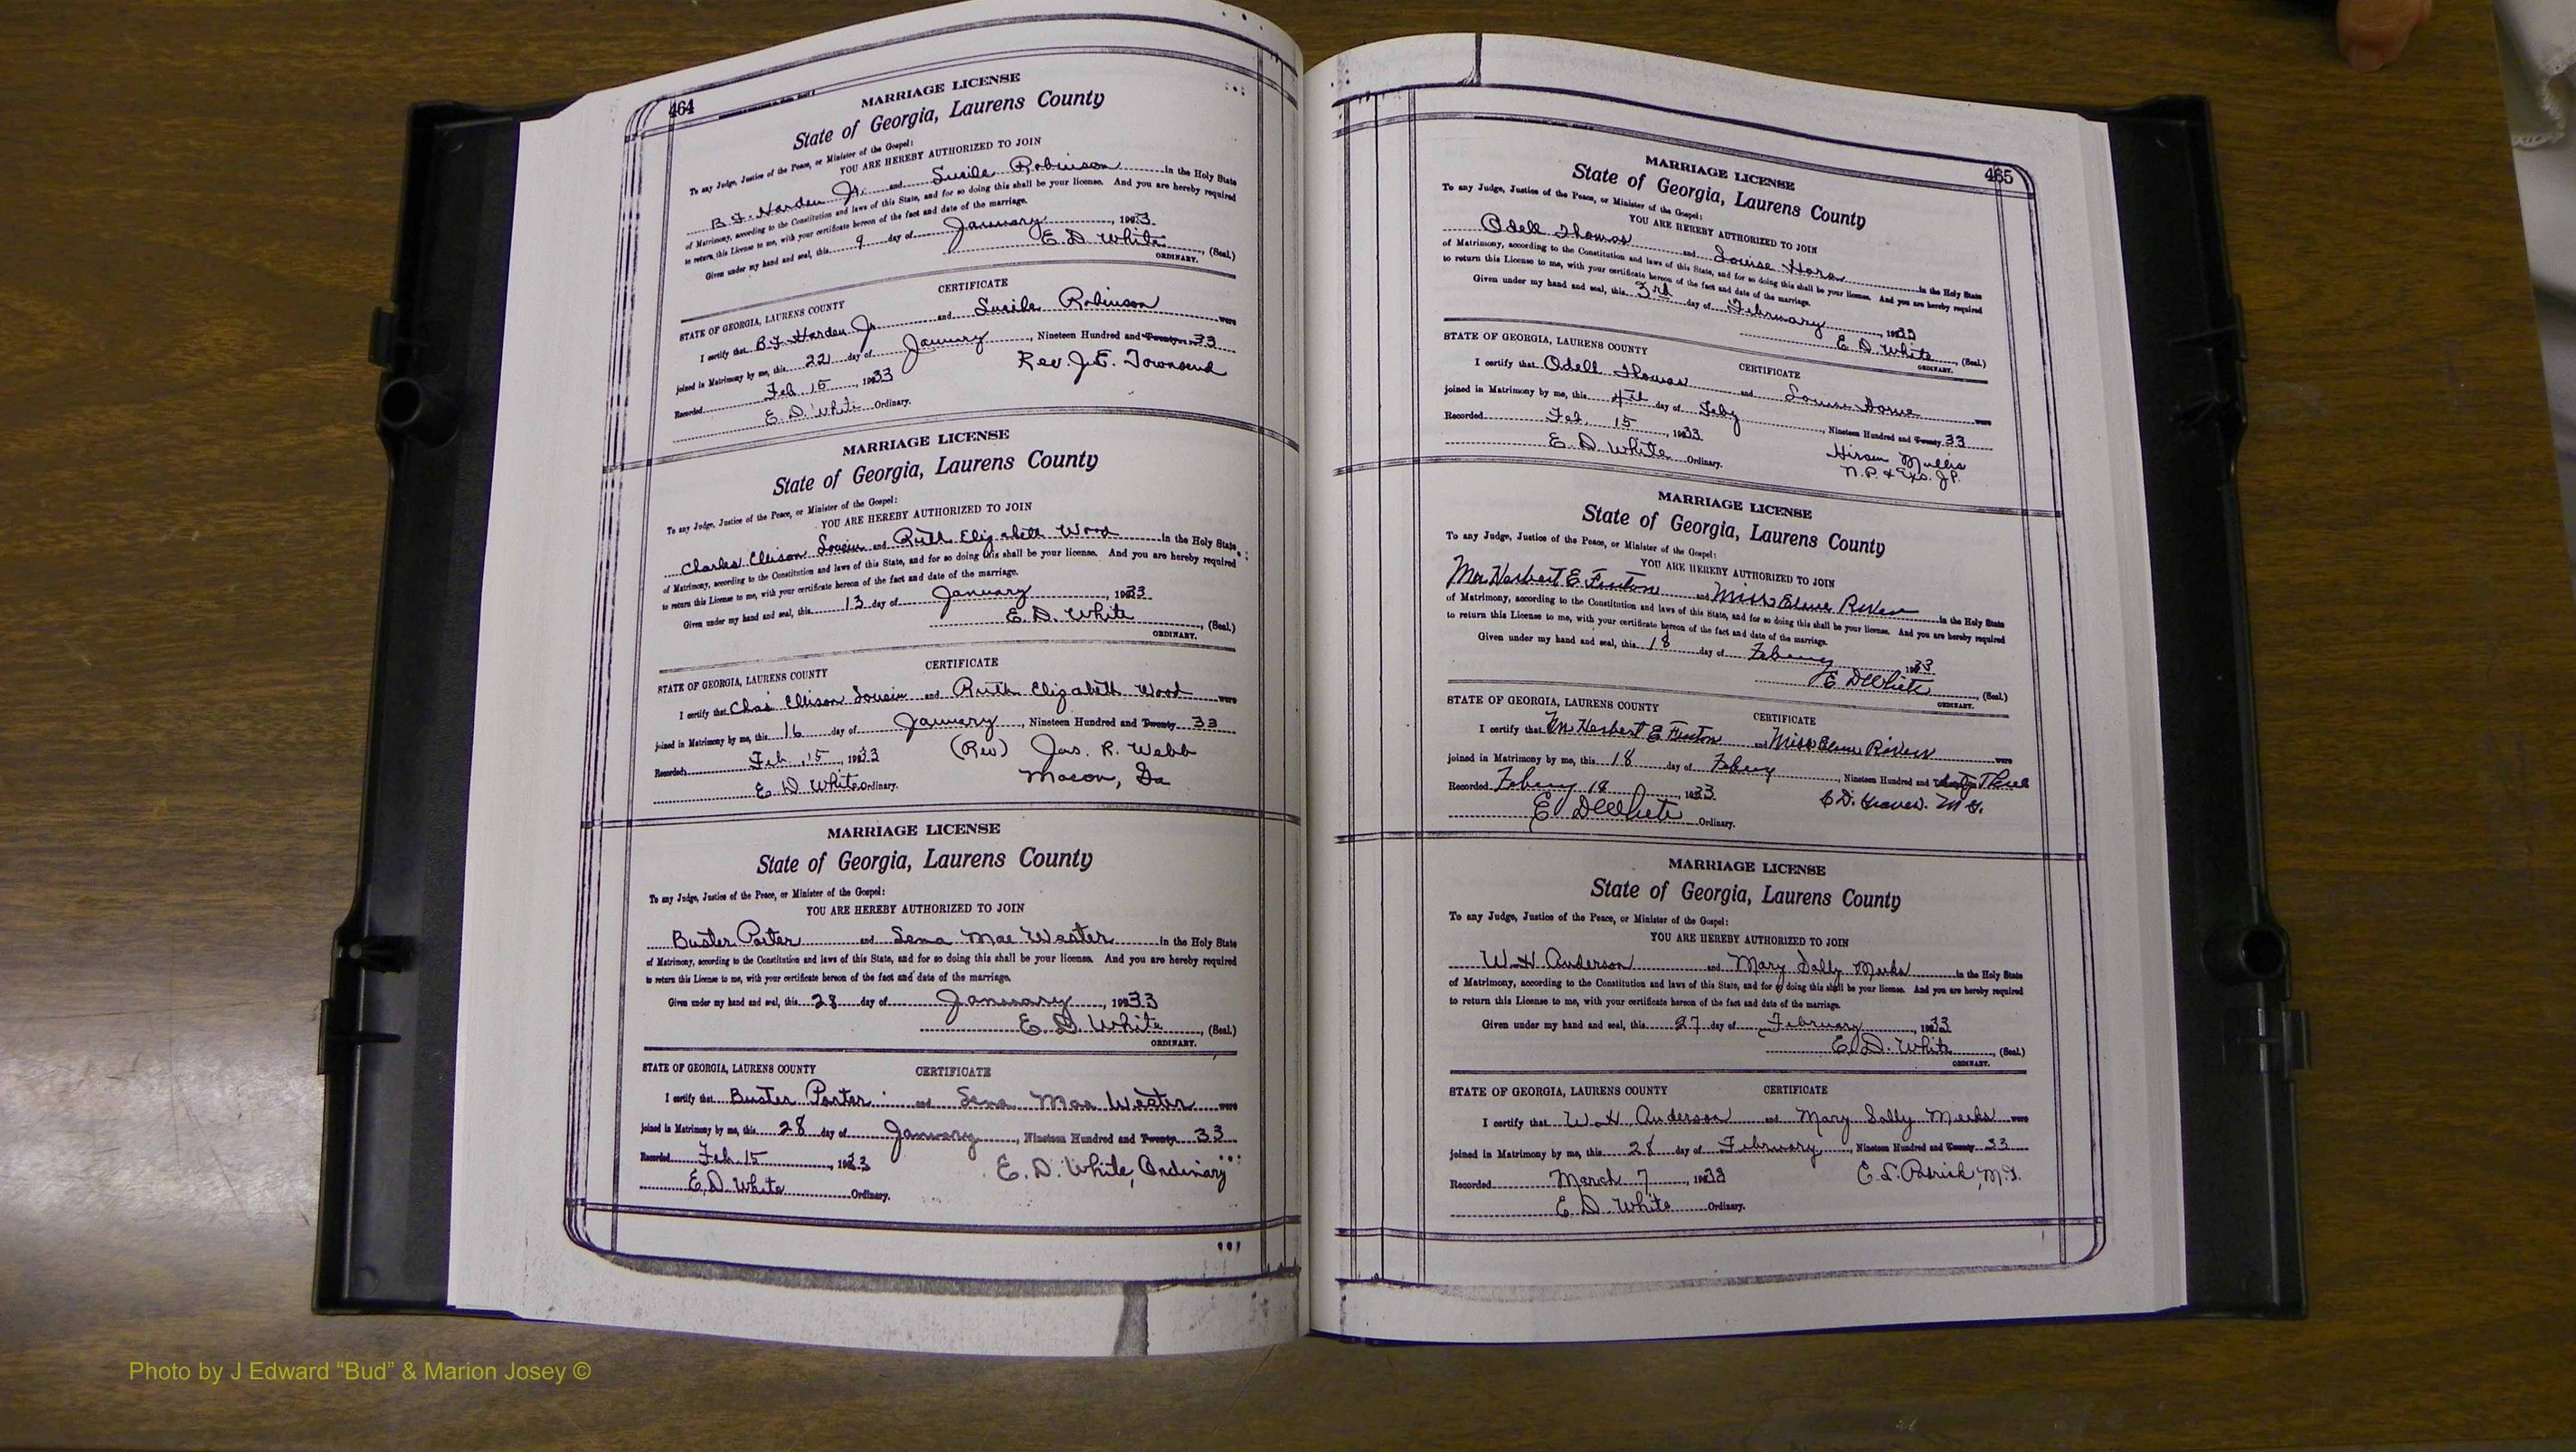 464
MARRIAGE LICENSE
State of Georgia, Laurens County
To any Judge, Justice of the Peace, or Minister of the Gospel:
YOU ARE HEREBY AUTHORIZED TO JOIN
B. F. Harden Jr. and Lucile Robinson in the Holy State
of Matrimony, according to the Constitution and laws of this State, and for so doing this shall be your license. And you are hereby required
to return this License to me, with your certificate hereon of the fact and date of the marriage.
Given under my hand and seal, this 9 day of January, 1933
E. D. White, (Seal.)
ORDINARY.
STATE OF GEORGIA, LAURENS COUNTY CERTIFICATE
I certify that B. F. Harden Jr. and Lucile Robinson were
joined in Matrimony by me, this 22 day of January, Nineteen Hundred and Twenty 33
Recorded Feb 15, 1933 Rev. J. E. Townsend
E. D. White Ordinary.
MARRIAGE LICENSE
State of Georgia, Laurens County
To any Judge, Justice of the Peace, or Minister of the Gospel:
YOU ARE HEREBY AUTHORIZED TO JOIN
Charles Ellison and Ruth Elizabeth Wood in the Holy State
of Matrimony, according to the Constitution and laws of this State, and for so doing this shall be your license. And you are hereby required
to return this License to me, with your certificate hereon of the fact and date of the marriage.
Given under my hand and seal, this 13 day of January, 1933
E. D. White, (Seal.)
ORDINARY.
STATE OF GEORGIA, LAURENS COUNTY CERTIFICATE
I certify that Chas Ellison and Ruth Elizabeth Wood were
joined in Matrimony by me, this 16 day of January, Nineteen Hundred and Twenty 33
Recorded Feb. 15, 1933 (Rev) Jas. R. Webb
E. D. White Ordinary. Macon, Ga
MARRIAGE LICENSE
State of Georgia, Laurens County
To any Judge, Justice of the Peace, or Minister of the Gospel:
YOU ARE HEREBY AUTHORIZED TO JOIN
Buster Porter and Lena Mae Wester in the Holy State
of Matrimony, according to the Constitution and laws of this State, and for so doing this shall be your license. And you are hereby required
to return this License to me, with your certificate hereon of the fact and date of the marriage.
Given under my hand and seal, this 28 day of January, 1933
E. D. White, (Seal.)
ORDINARY.
STATE OF GEORGIA, LAURENS COUNTY CERTIFICATE
I certify that Buster Porter and Lena Mae Wester were
joined in Matrimony by me, this 28 day of January, Nineteen Hundred and Twenty 33
Recorded Feb. 15, 1933 E. D. White, Ordinary
E. D. White Ordinary.
465
MARRIAGE LICENSE
State of Georgia, Laurens County
To any Judge, Justice of the Peace, or Minister of the Gospel:
YOU ARE HEREBY AUTHORIZED TO JOIN
Odell Thomas and Louise Horn in the Holy State
of Matrimony, according to the Constitution and laws of this State, and for so doing this shall be your license. And you are hereby required
to return this License to me, with your certificate hereon of the fact and date of the marriage.
Given under my hand and seal, this 3rd day of February, 1933
E. D. White, (Seal.)
ORDINARY.
STATE OF GEORGIA, LAURENS COUNTY CERTIFICATE
I certify that Odell Thomas and Louise Horne were
joined in Matrimony by me, this 4th day of Feby, Nineteen Hundred and Twenty 33
Recorded Feb. 15, 1933 Hiram Mullis
E. D. White Ordinary. N.P. & Exo. J.P.
MARRIAGE LICENSE
State of Georgia, Laurens County
To any Judge, Justice of the Peace, or Minister of the Gospel:
YOU ARE HEREBY AUTHORIZED TO JOIN
Mr Herbert E and Miss in the Holy State
of Matrimony, according to the Constitution and laws of this State, and for so doing this shall be your license. And you are hereby required
to return this License to me, with your certificate hereon of the fact and date of the marriage.
Given under my hand and seal, this 18 day of 1933
E D White, (Seal.)
ORDINARY.
STATE OF GEORGIA, LAURENS COUNTY CERTIFICATE
I certify that Mr Herbert E and Miss were
joined in Matrimony by me, this 18 day of, Nineteen Hundred and Three
Recorded 18, 1933 M G.
E D White Ordinary.
MARRIAGE LICENSE
State of Georgia, Laurens County
To any Judge, Justice of the Peace, or Minister of the Gospel:
YOU ARE HEREBY AUTHORIZED TO JOIN
W. H. Anderson and Mary Sally Meeks in the Holy State
of Matrimony, according to the Constitution and laws of this State, and for so doing this shall be your license. And you are hereby required
to return this License to me, with your certificate hereon of the fact and date of the marriage.
Given under my hand and seal, this 27 day of February, 1933
E. D. White, (Seal.)
ORDINARY.
STATE OF GEORGIA, LAURENS COUNTY CERTIFICATE
I certify that W. H. Anderson and Mary Sally Meeks were
joined in Matrimony by me, this 28 day of February, Nineteen Hundred and Twenty 33
Recorded March 7, 1933 E. L. Patrick, M.G.
E. D. White Ordinary.
Photo by J Edward “Bud” & Marion Josey ©